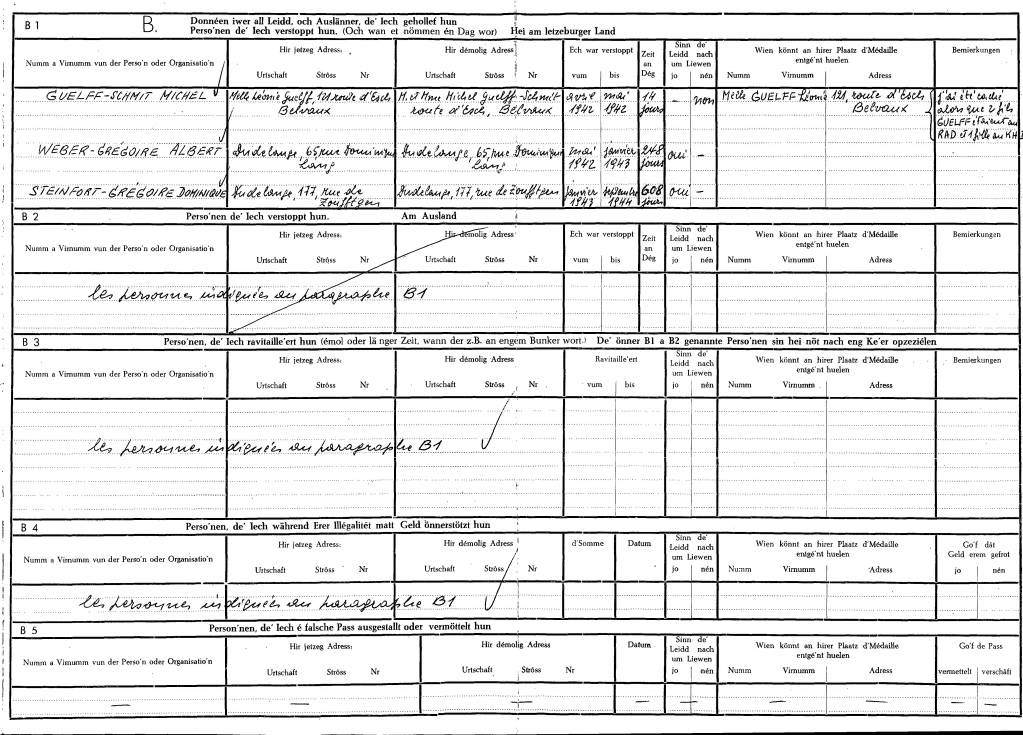 B 1 B. Donnéen iwer all Leidd, och Auslänner, de' Iech gehollef hun
Perso'nen de' Iech verstoppt hun. (Och wan et nömmen én Dag wor) Hei am letzeburger Land
Numm a Virnumm vun der Perso'n oder Organisatio'n
Hir jetzeg Adress:
Urtschaft Ströss Nr
Hir démolig Adress
Urtschaft Ströss Nr
Ech war verstoppt
vum bis
Zeit an Dég
Sinn de' Leidd nach um Liewen
jo nén
Wien könnt an hirer Plaatz d'Médaille entgé'nt huelen
Numm Virnumm Adress
Bemierkungen
GUELFF-SCHMIT MICHEL
Melle Léonie Guelff, 121 route d'Esch
Belvaux
M. et Mme Michel Guelff-Schmit
route d'Esch, Belvaux
avril 1942
mai 1942
14 jours
–
non
Melle GUELFF Léonie 121, route d'Esch
Belvaux
j'ai été caché
alors que 2 fils
GUELFF étaient au
RAD et 1 fille au KHD
WEBER-GRÉGOIRE ALBERT
Dudelange, 65, rue Dominique
Lang
Dudelange, 65, rue Dominique
Lang
mai 1942
janvier 1943
248 jours
oui
–
STEINFORT-GRÉGOIRE DOMINIQUE
Dudelange, 177, rue de
Zoufftgen
Dudelange, 177, rue de Zoufftgen
janvier 1943
septembre 1944
608 jours
oui
–
B 2 Perso'nen de' Iech verstoppt hun. Am Ausland
Numm a Virnumm vun der Perso'n oder Organisatio'n
Hir jetzeg Adress:
Urtschaft Ströss Nr
Hir démolig Adress
Urtschaft Ströss Nr
Ech war verstoppt
vum bis
Zeit an Dég
Sinn de' Leidd nach um Liewen
jo nén
Wien könnt an hirer Plaatz d'Médaille entgé'nt huelen
Numm Virnumm Adress
Bemierkungen
les personnes indiquées au paragraphe B1
B 3 Perso'nen, de' Iech ravitaille'ert hun (émol oder länger Zeit, wann der z.B. an engem Bunker wort.) De' önner B1 a B2 genannte Perso'nen sin hei nöt nach eng Ke'er opzeziélen
Numm a Virnumm vun der Perso'n oder Organisatio'n
Hir jetzeg Adress:
Urtschaft Ströss Nr
Hir démolig Adress
Urtschaft Ströss Nr
Ravitaille'ert
vum bis
Sinn de' Leidd nach um Liewen
jo nén
Wien könnt an hirer Plaatz d'Médaille entgé'nt huelen
Numm Virnumm Adress
Bemierkungen
les personnes indiquées au paragraphe B1
B 4 Perso'nen, de' Iech während Erer Illégalitét matt Geld önnerstötzt hun
Numm a Virnumm vun der Perso'n oder Organisatio'n
Hir jetzeg Adress:
Urtschaft Ströss Nr
Hir démolig Adress
Urtschaft Ströss Nr
d'Somme
Datum
Sinn de' Leidd nach um Liewen
jo nén
Wien könnt an hirer Plaatz d'Médaille entgé'nt huelen
Numm Virnumm Adress
Go'f dât Geld erem gefrot
jo nén
les personnes indiquées au paragraphe B1
B 5 Person'nen, de' Iech é falsche Pass ausgestallt oder vermöttelt hun
Numm a Virnumm vun der Perso'n oder Organisatio'n
Hir jetzeg Adress:
Urtschaft Ströss Nr
Hir démolig Adress
Urtschaft Ströss Nr
Datum
Sinn de' Leidd nach um Liewen
jo nén
Wien könnt an hirer Plaatz d'Médaille entgé'nt huelen
Numm Virnumm Adress
Go'f de Pass
vermettelt verschâft
— — — — — — — — — — —